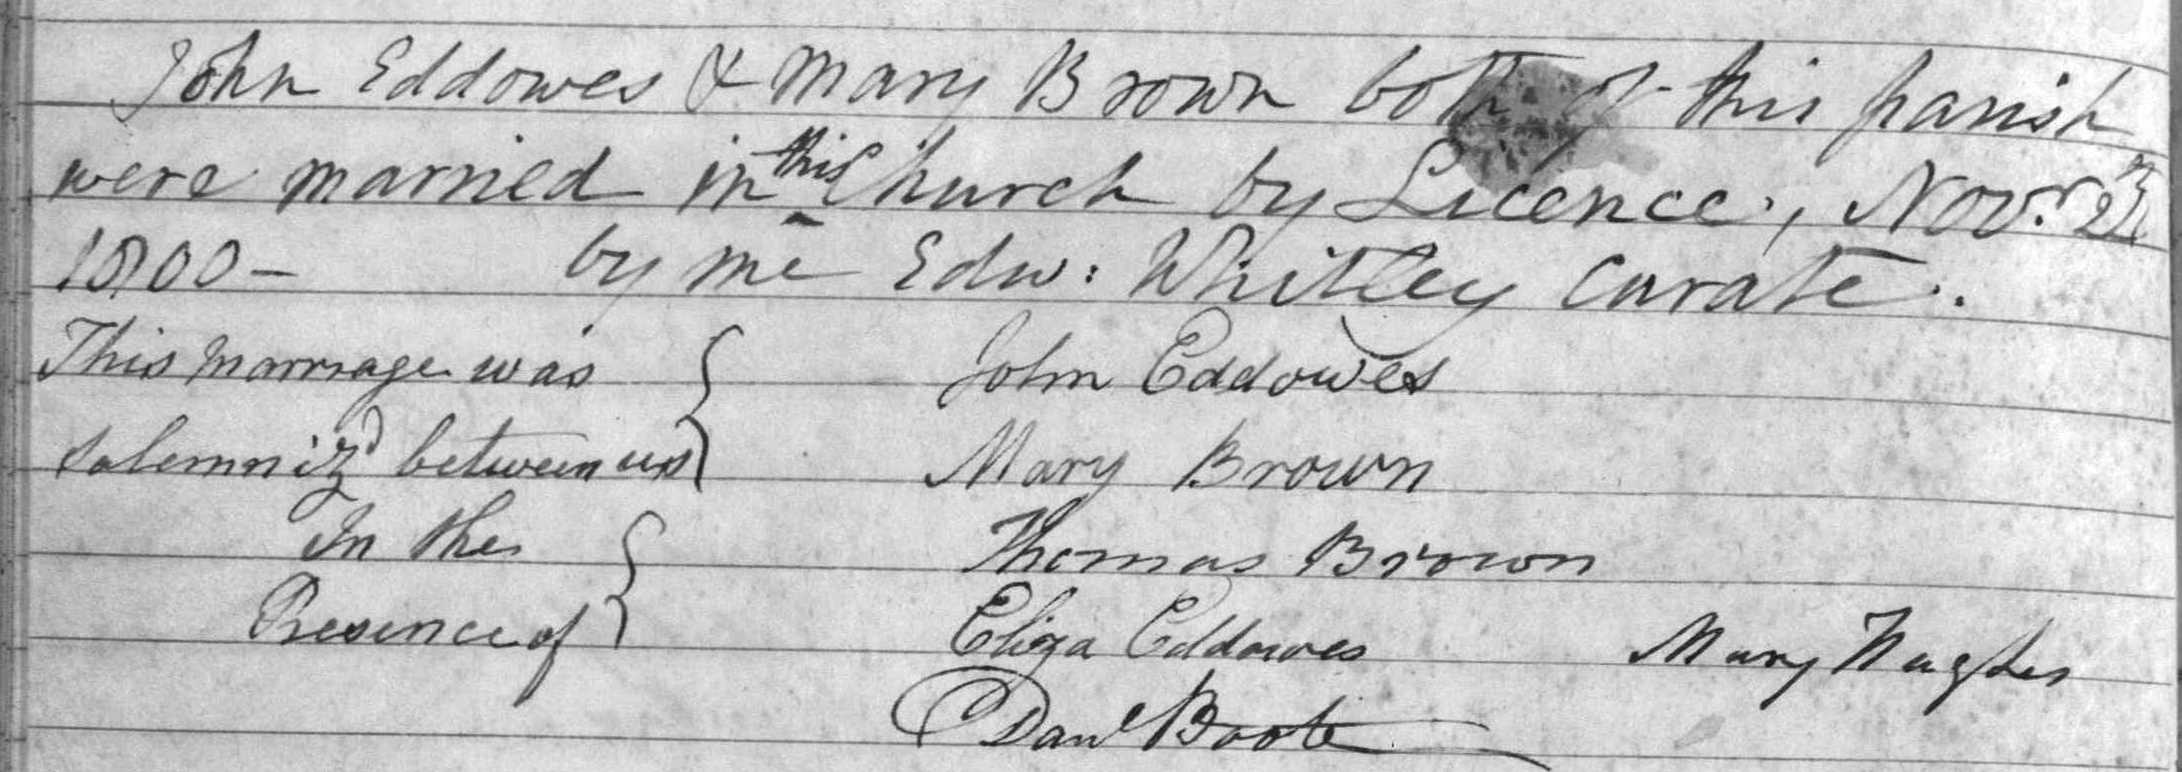 John Eddowes & Mary Brown both of this parish
were married in this Church by Licence, Novr. 23
1800 - by me Edw: Whitley Curate.
This marriage was John Eddowes
solemniz'd between us Mary Brown
In the Thomas Brown
Presence of Eliza Eddowes Mary Hughes
Danl Boote